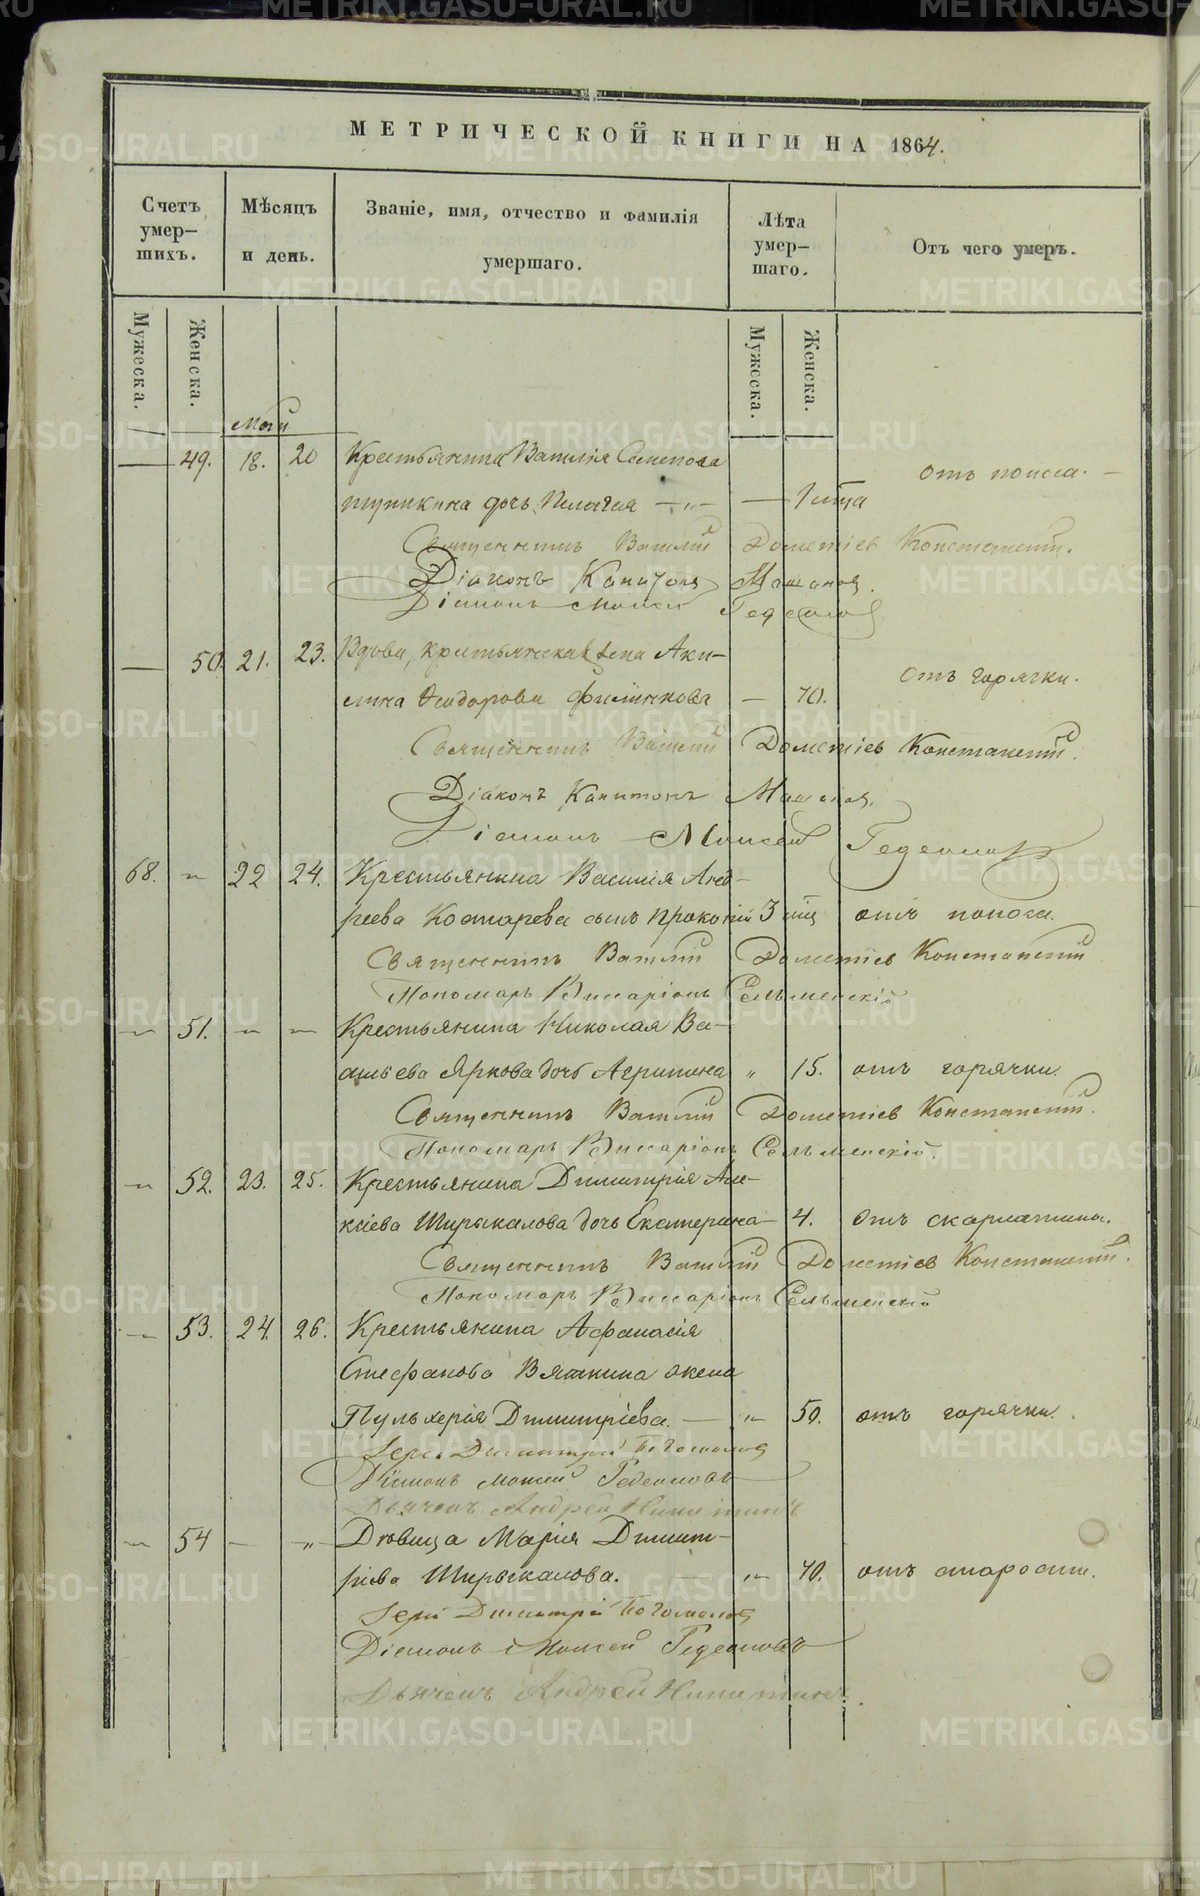 МЕТРИЧЕСКОЙ КНИГИ НА 1864.
Счетъ умер-шихъ.
Мѣсяцъ и день.
Званіе, имя, отчество и фамилія умершаго.
Лѣта умер-шаго.
Отъ чего умеръ.
Мужеска.
Женска.
Мужеска.
Женска.
Май
49. 18. 20 Крестьянина Василія Семенова
дочь Пелагея — 1 отъ поноса.
Священникъ Василій Дометіевъ Константинъ.
Діаконъ Капитонъ
Діаконъ Моисей Гедеоновъ
50. 21. 23. Вдова, крестьянская жена Аки-
лина Ѳеодорова Филинкова — 70. отъ горячки.
Священникъ Василій Дометіевъ Константинъ.
Діаконъ Капитонъ
Діаконъ Моисей Гедеоновъ
68. 22 24. Крестьянина Василія Анд-
реева Костарева сынъ Прокопій 3 отъ поноса.
Священникъ Василій Дометіевъ Константинъ
Пономарь Виссаріонъ Сельменскій
51. Крестьянина Николая Ва-
сильева Яркова дочь Агрипина „ 15. отъ горячки.
Священникъ Василій Дометіевъ Константинъ.
Пономарь Виссаріонъ Сельменскій.
52. 23. 25. Крестьянина Димитрія Але-
ксіева Ширыкалова дочь Екатерина 4. отъ скарлатины.
Священникъ Василій Дометіевъ Константинъ.
Пономарь Виссаріонъ Сельменскій
53. 24. 26. Крестьянина Афанасія
Стефанова Вяткина жена
Пульхерія Димитріева. — 50. отъ горячки.
Іерей Димитрій Богомоловъ
Діаконъ Моисей Гедеоновъ
Дьячекъ Андрей Никитинъ
54 Дѣвица Марія Димит-
ріева Ширыкалова. 70. отъ старости.
Іерей Димитрій Богомоловъ
Діаконъ Моисей Гедеоновъ
Дьячекъ Андрей Никитинъ.
METRIKI.GASO-URAL.RU